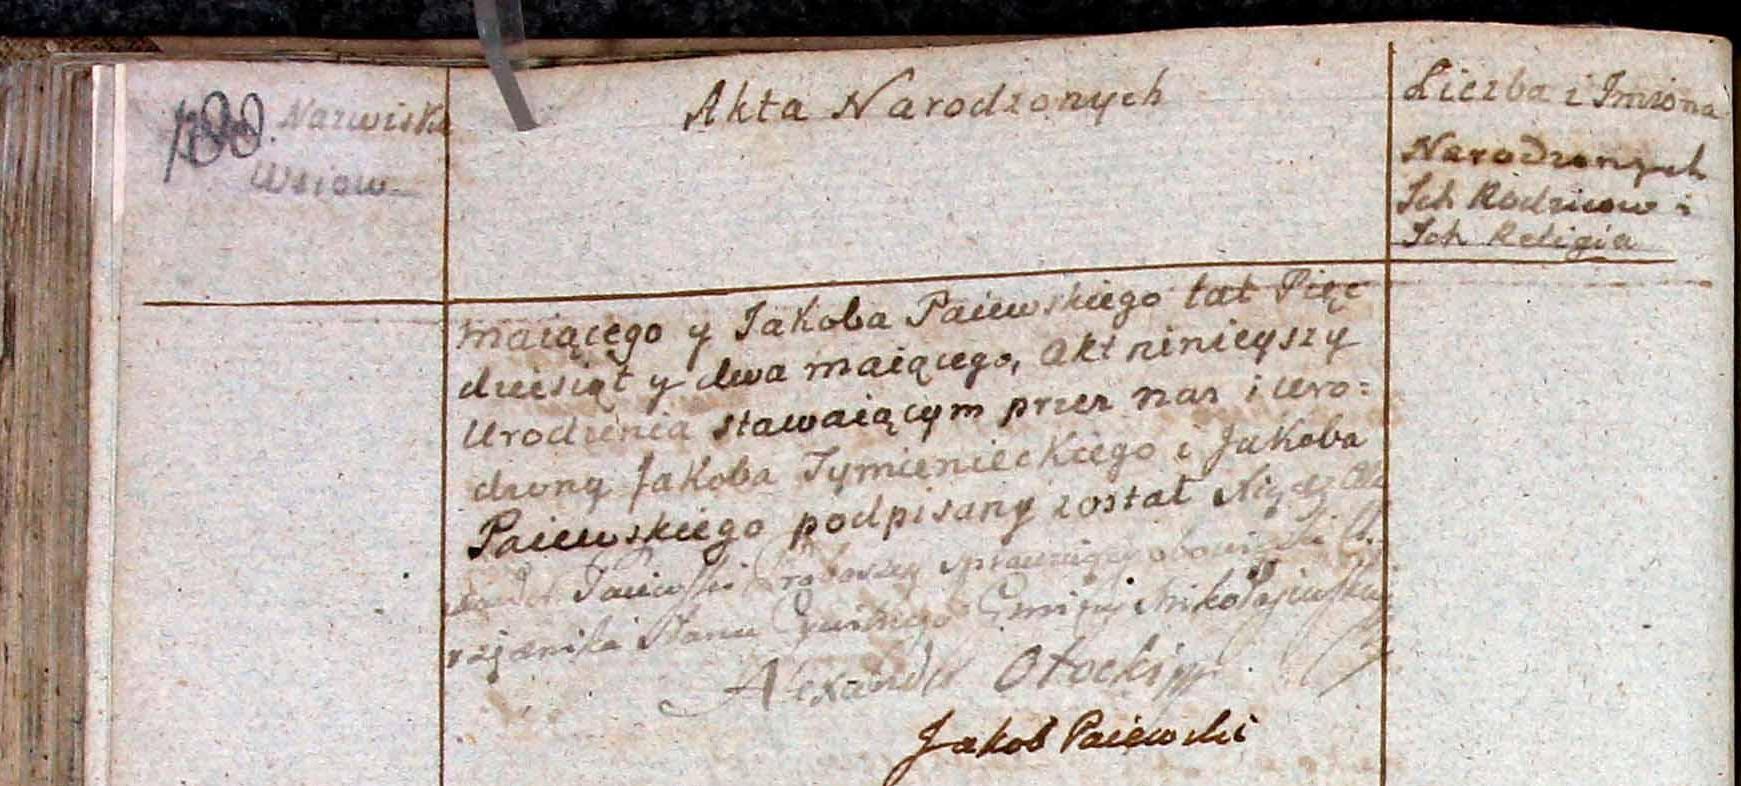 Nazwiska
Wsiow
Akta Narodzonych
Liczba i Imiona
Narodzonych
Ich Rodzicow i
Ich Religia
maiącego y Jakoba Paiewskiego lat Pięć
dziesiąt y dwa maiącego, akt ninieyszy
Urodzenia stawaiącym przez nas i uro=
dzony Jakoba Tymienieckiego i Jakoba
Paiewskiego podpisany został Xiądz Ale
Paiewski Proboszcz sprawuiący obowiązki U.
rzędnika Stanu Cywilnego Gminy Mikołajewskiey
Alexander Otocki
Jakob Paiewski